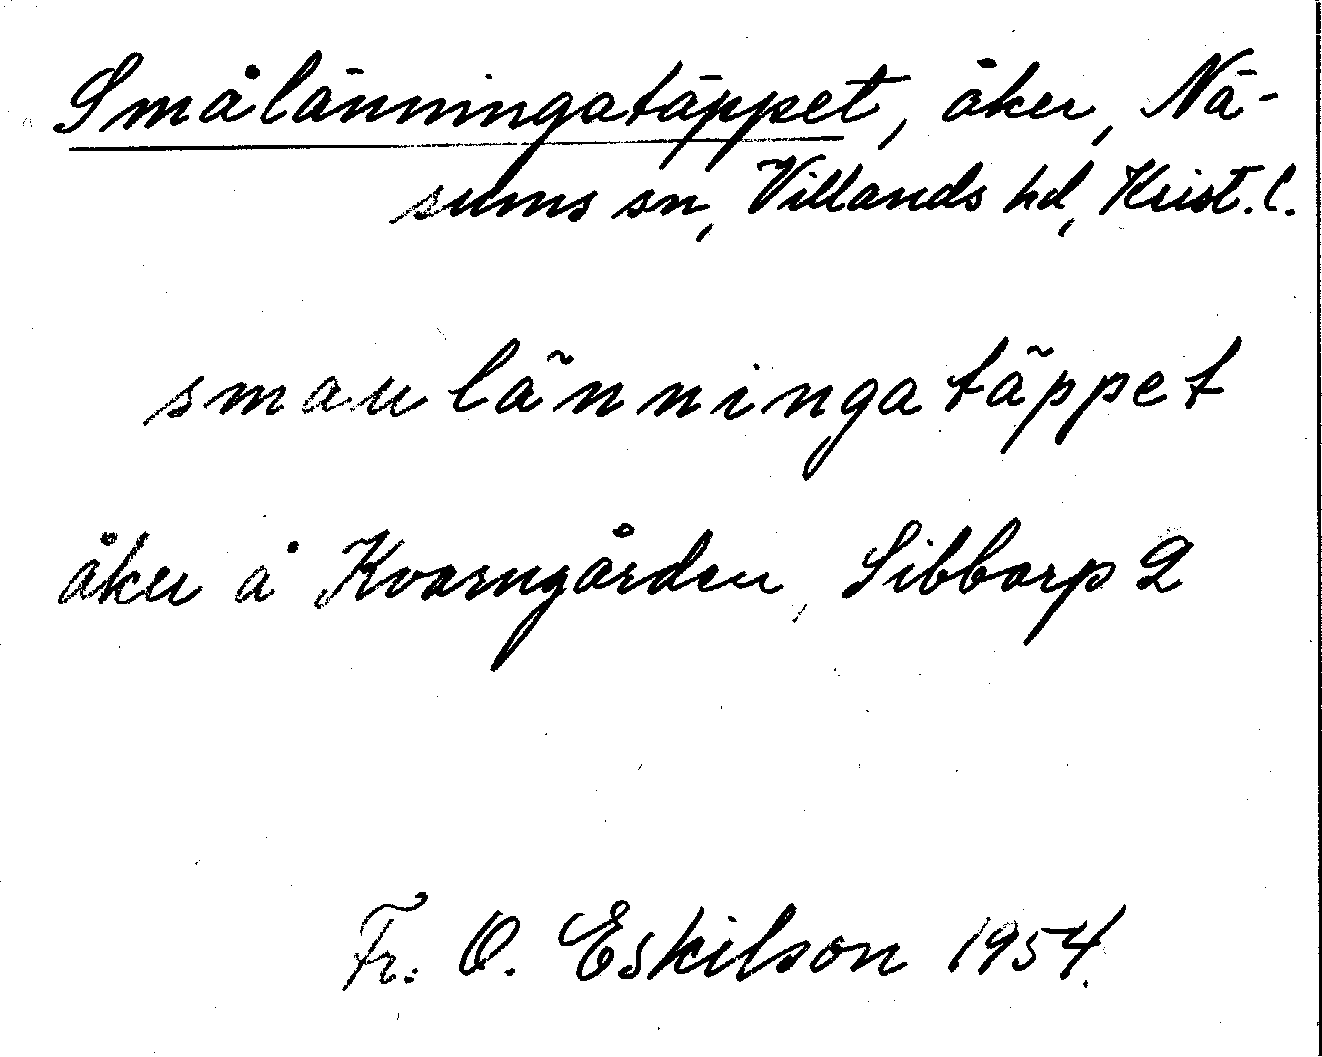 Smålänningatäppet, åker, Nä-
sums sn, Villands hd, Krist. l.
smaulänningatäppet
åker å Kvarngården, Sibbarp 2
Fr. O. Eskilson 1954.